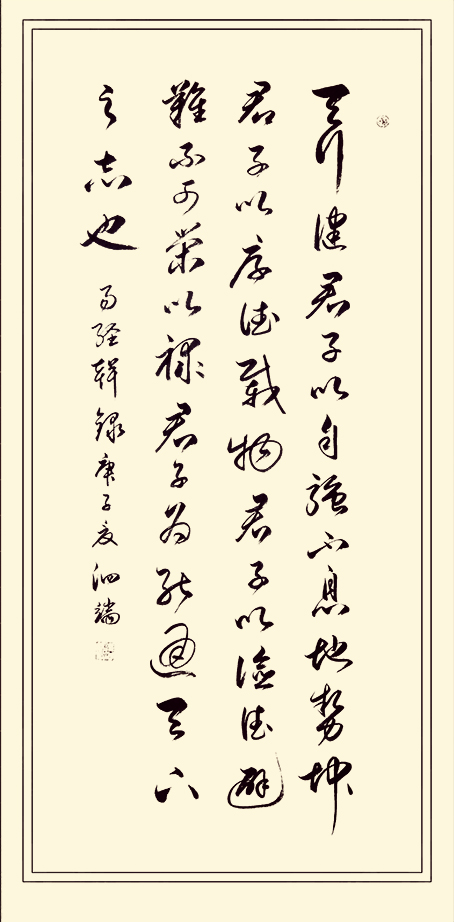 天行健君子以自強不息地勢坤
君子以厚德載物君子以儉德避
難不可榮以祿君子為能通天下
之志也
易經輯錄庚子夏泗端